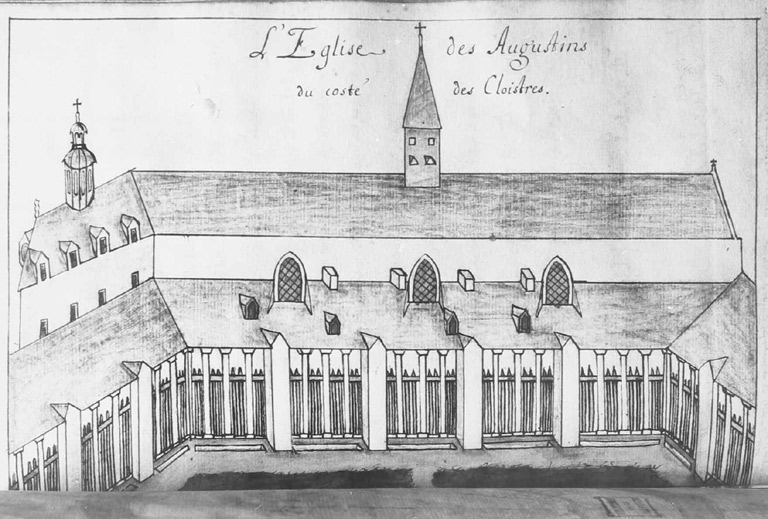 L'Eglise des Augustins
du costé des Cloistres.